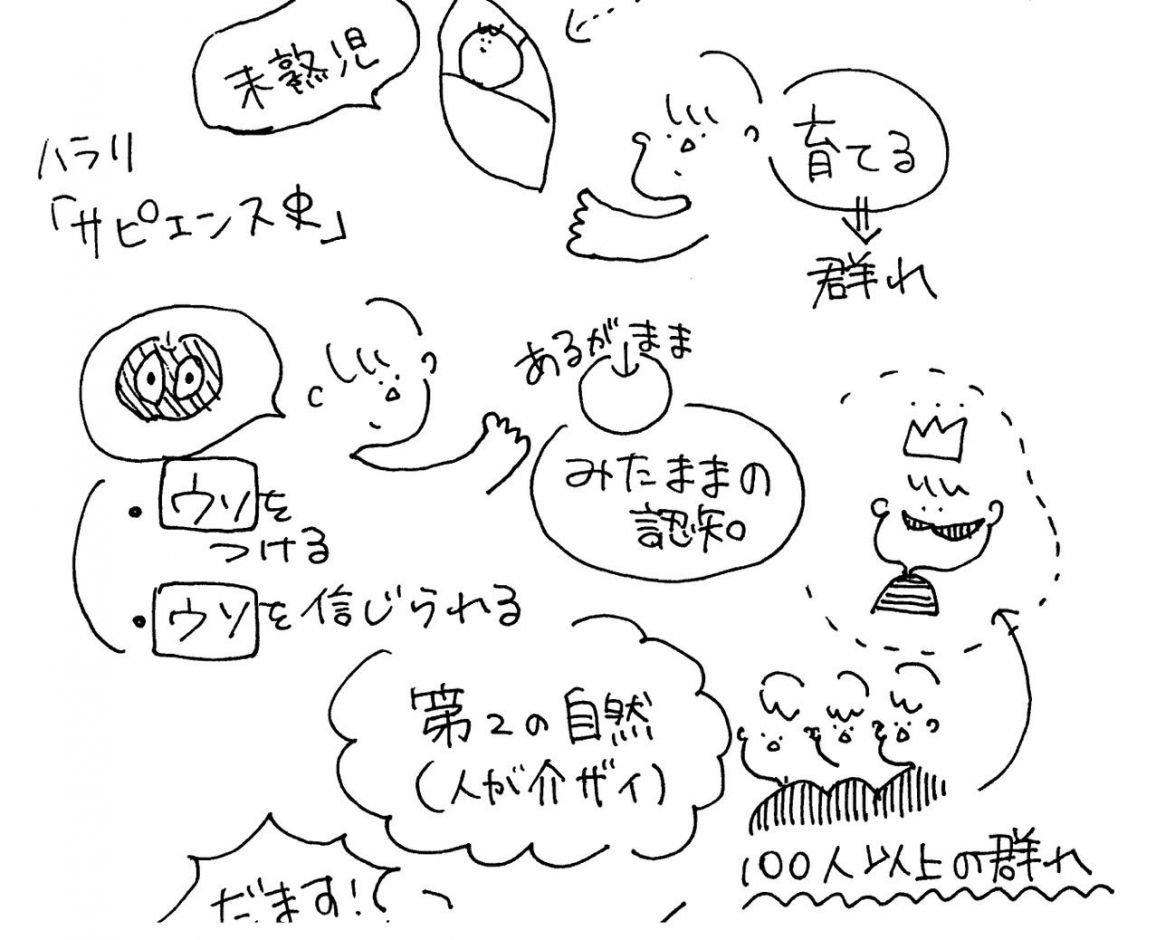 未熟児
育てる
群れ
ハラリ
「サピエンス史」
あるがまま
みたままの
認知。
・ウソを
つける
・ウソを信じられる
第2の自然
(人が介ザイ)
100人以上の群れ
だます!